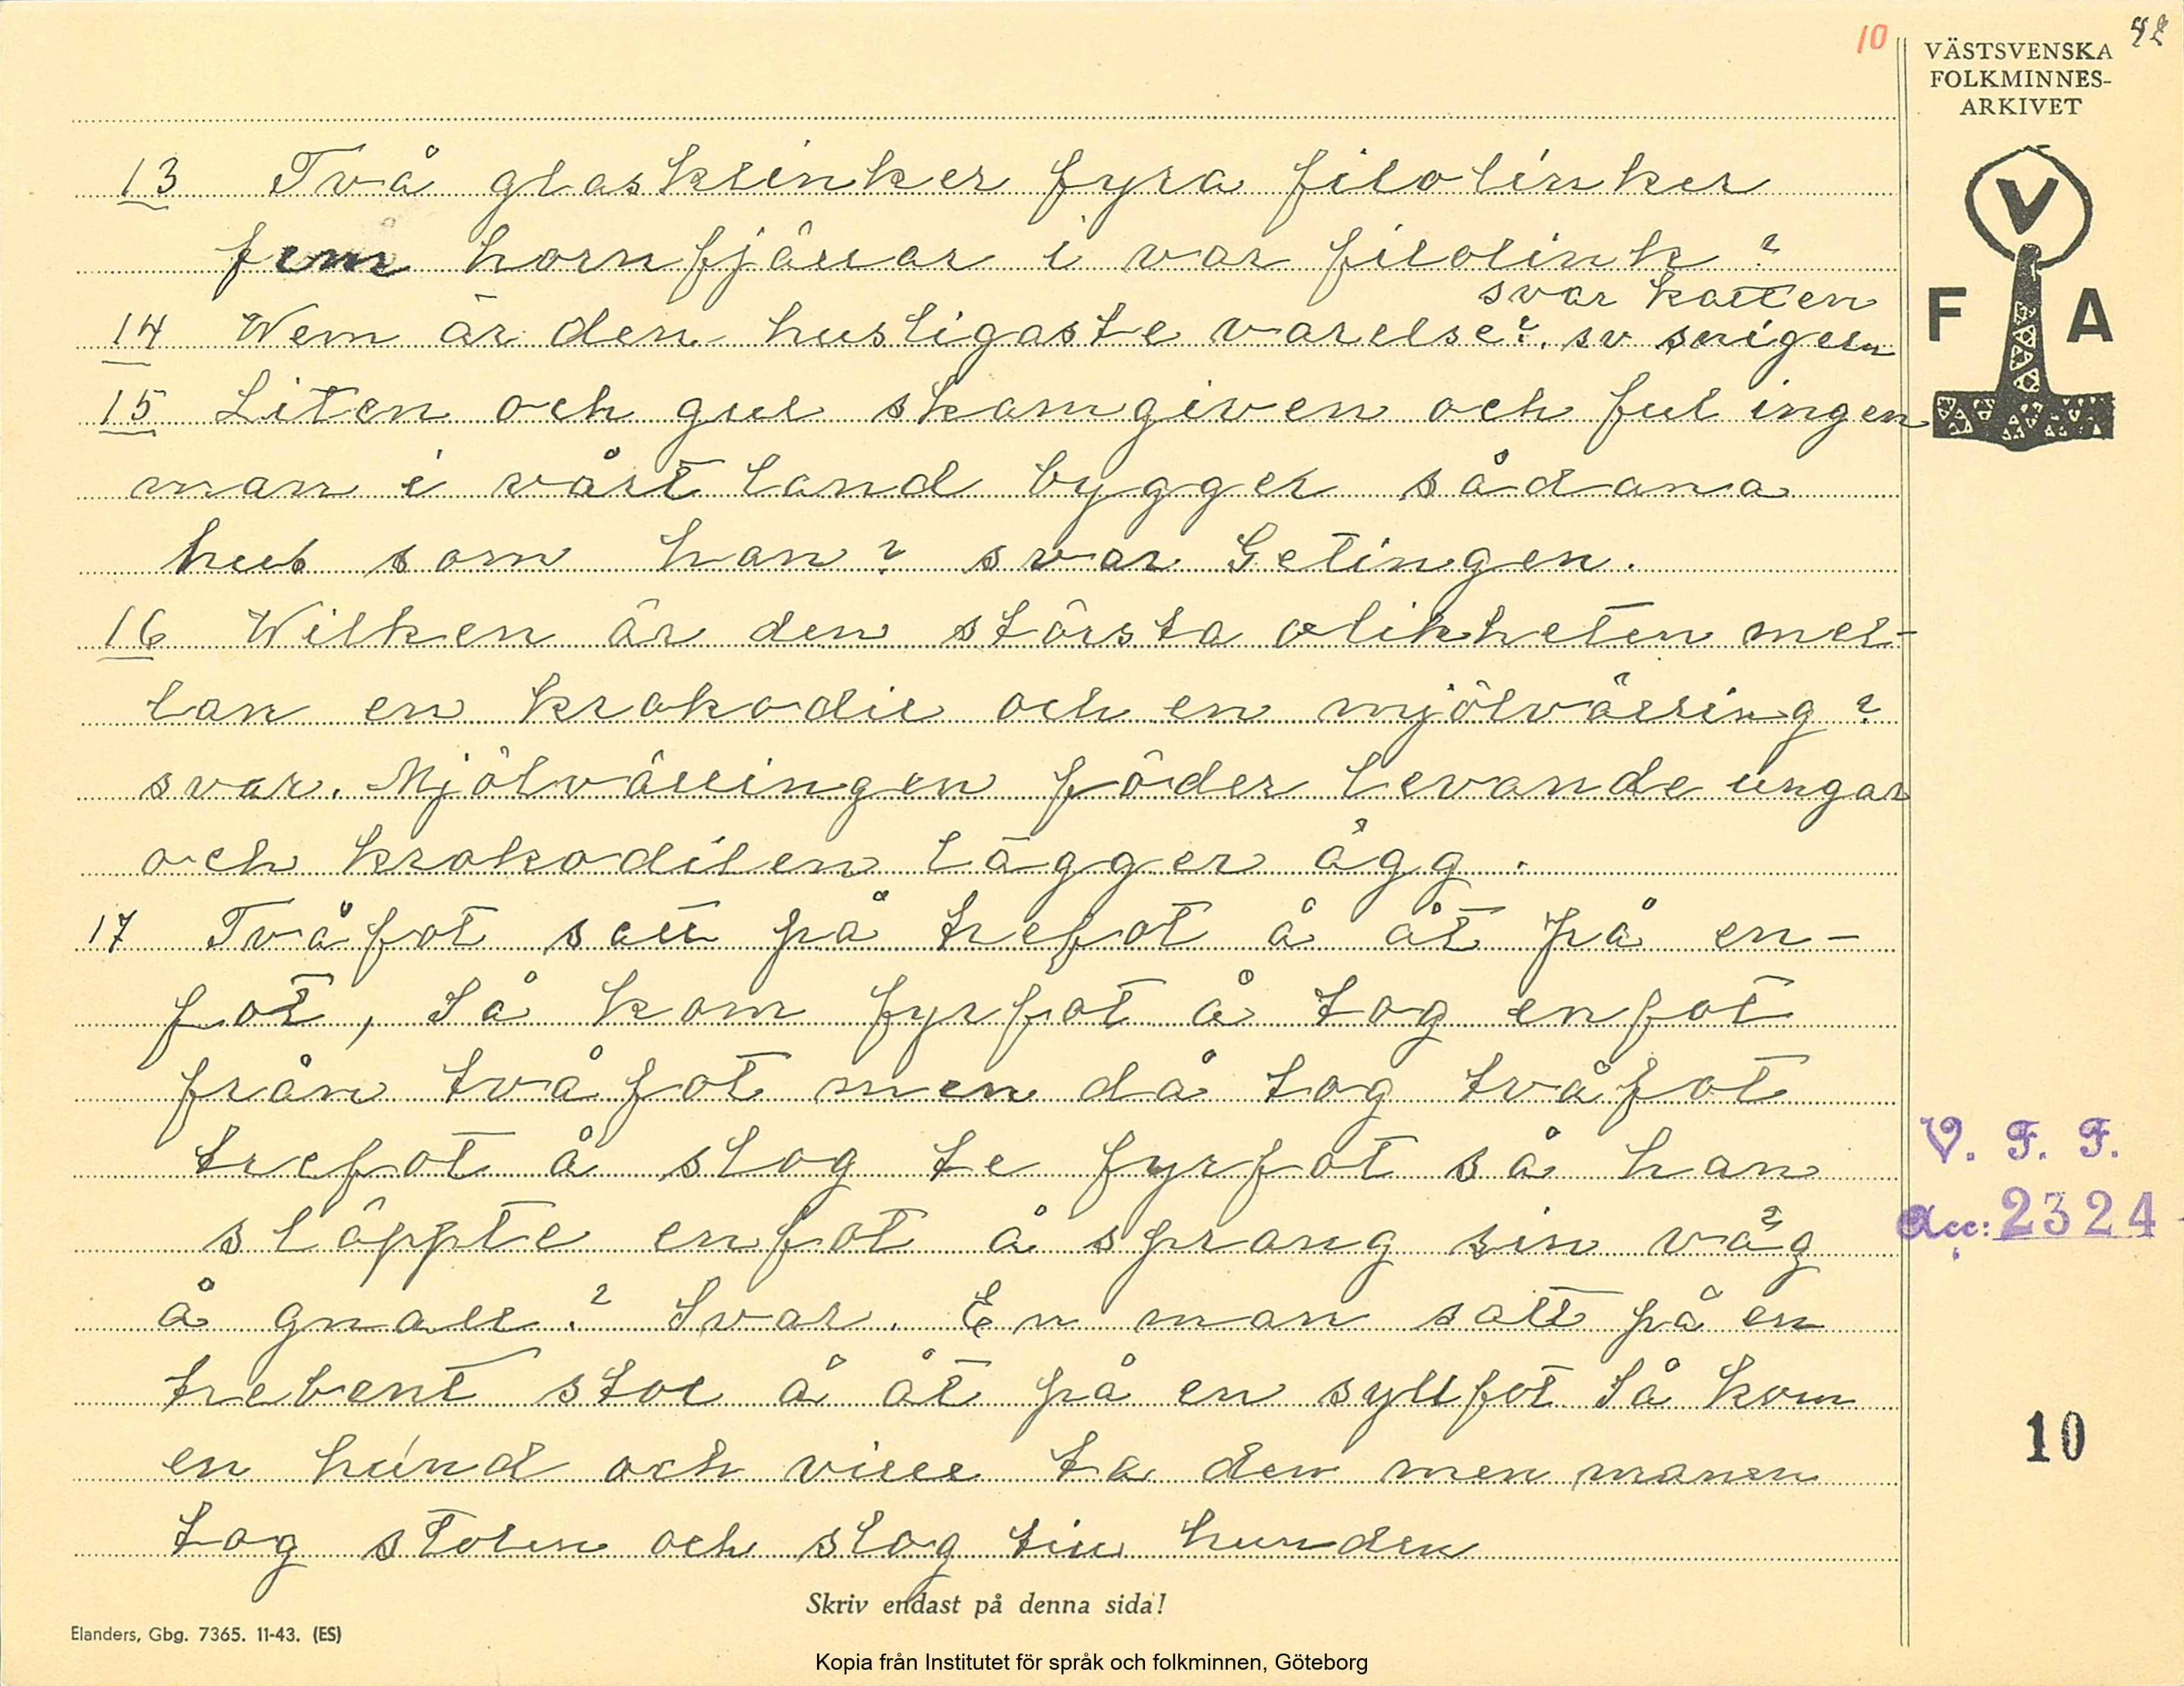 10
42
VÄSTSVENSKA
FOLKMINNES-
ARKIVET
V
F A
13 Två glasklinker fyra filolinker
fem hornfjällar i var filolink?
svar katten
14 Wem är den husligaste varelse? sv snigeln
15 Liten och gul skamgiven och ful ingen
man i vårt land bygger sådana
hus som han? svar Getingen.
16 Wilken är den största olikheten mel-
lan en krokodil och en mjölvälling?
svar. Mjölvällingen föder levande ungar
och krokodilen lägger ägg.
17 Tvåfot satt på trefot å åt på en-
fot, Så kom fyrfot å tog enfot
från tvåfot men då tog tvåfot
trefot å slog te fyrfot så han
släppte enfot å sprang sin väg
å gnall.? Svar. En man satt på en
trebent stol å åt på en syltfot Så kom
en hund och ville ta den men mannen
tog stolen och slog till hunden
V. F. F.
Acc: 2324
10
Skriv endast på denna sida!
Elanders, Gbg. 7365. 11-43. (ES)
Kopia från Institutet för språk och folkminnen, Göteborg